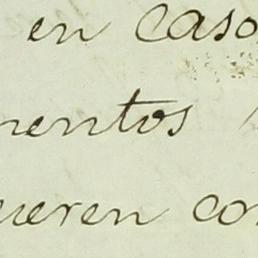 en caso
mentos
ueren con